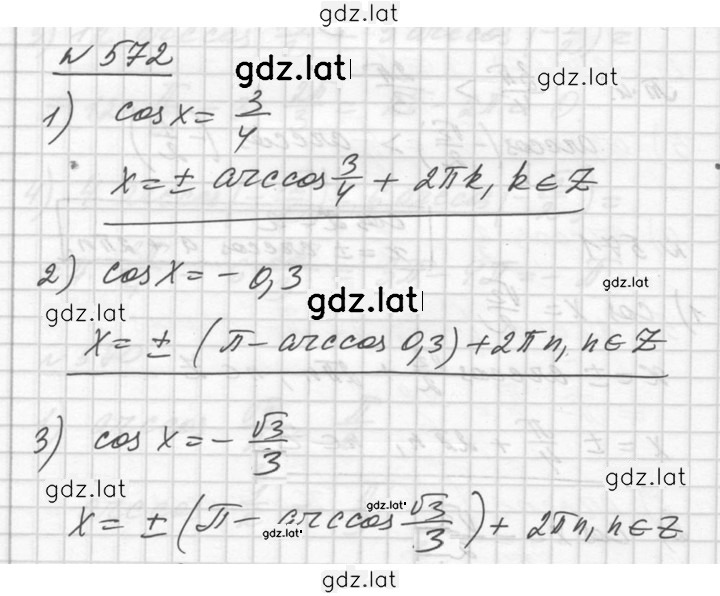 gdz.lat
№ 572
gdz.lat
gdz.lat
1) cos x = 3/4
x = ± arccos 3/4 + 2πk, k ∈ Z
2) cos x = - 0,3
gdz.lat
gdz.lat
gdz.lat
x = ± (π - arccos 0,3) + 2πn, n ∈ Z
3) cos x = - √3/3
gdz.lat
gdz.lat
x = ± (π - arccos √3/3) + 2πn, n ∈ Z
gdz.lat
gdz.lat
gdz.lat